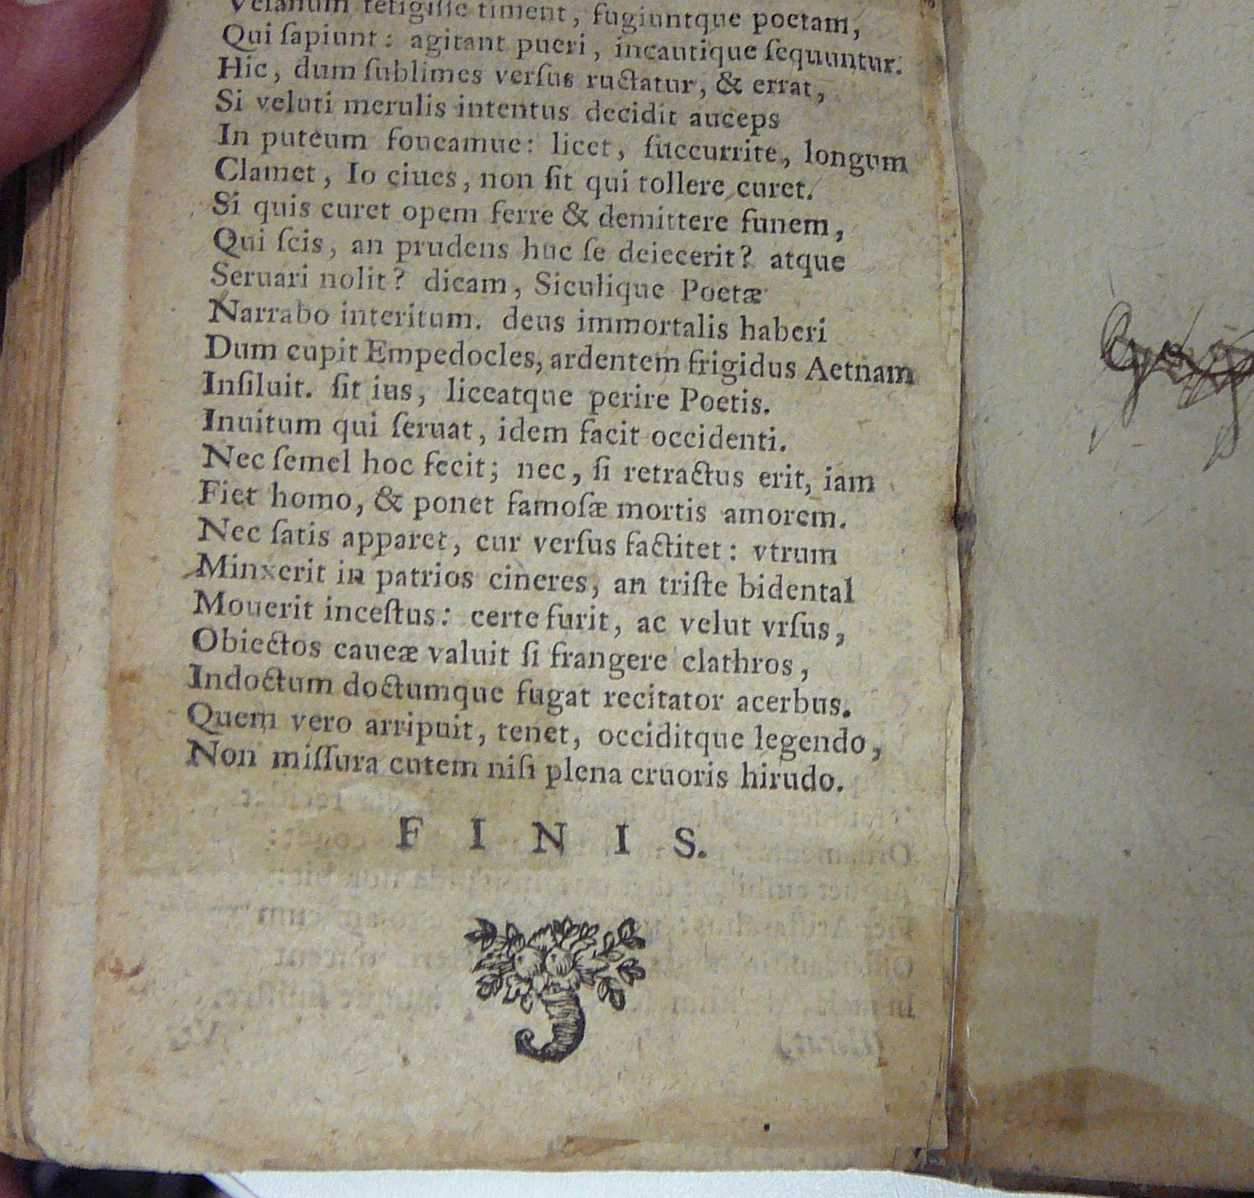 Veſanum tetigiſſe timent, fugiuntque poetam,
Qui ſapiunt: agitant pueri, incautique ſequuntur.
Hic, dum ſublimes verſus ructatur, & errat,
Si veluti merulis intentus decidit auceps
In puteum foueamue: licet, ſuccurrite, longum
Clamet, Io ciues, non ſit qui tollere curet.
Si quis curet opem ferre & demittere funem,
Qui ſcis, an prudens huc ſe deiecerit? atque
Seruari nolit? dicam, Siculique Poetæ
Narrabo interitum. deus immortalis haberi
Dum cupit Empedocles, ardentem frigidus Aetnam
Inſiluit. ſit ius, liceatque perire Poetis.
Inuitum qui ſeruat, idem facit occidenti.
Nec ſemel hoc fecit; nec, ſi retractus erit, iam
Fiet homo, & ponet famoſæ mortis amorem.
Nec ſatis apparet, cur verſus factitet: vtrum
Minxerit in patrios cineres, an triſte bidental
Mouerit inceſtus: certe furit, ac velut vrſus,
Obiectos caueæ valuit ſi frangere clathros,
Indoctum doctumque fugat recitator acerbus.
Quem vero arripuit, tenet, occiditque legendo,
Non miſſura cutem niſi plena cruoris hirudo.
FINIS.